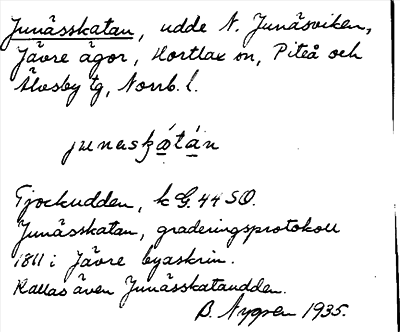 Junässkatan, udde N. Junäsviken,
Jävre ägor, Hortlax sn, Piteå och
Älvsby tg, Norrb. l.
junasʃk̯ǿtán
Tjockudden, k G. 44 SO.
Junässkatan, graderingsprotokoll
1811 i Jävre byaskrin.
Kallas även Junässkataudden.
B. Nygren 1935.